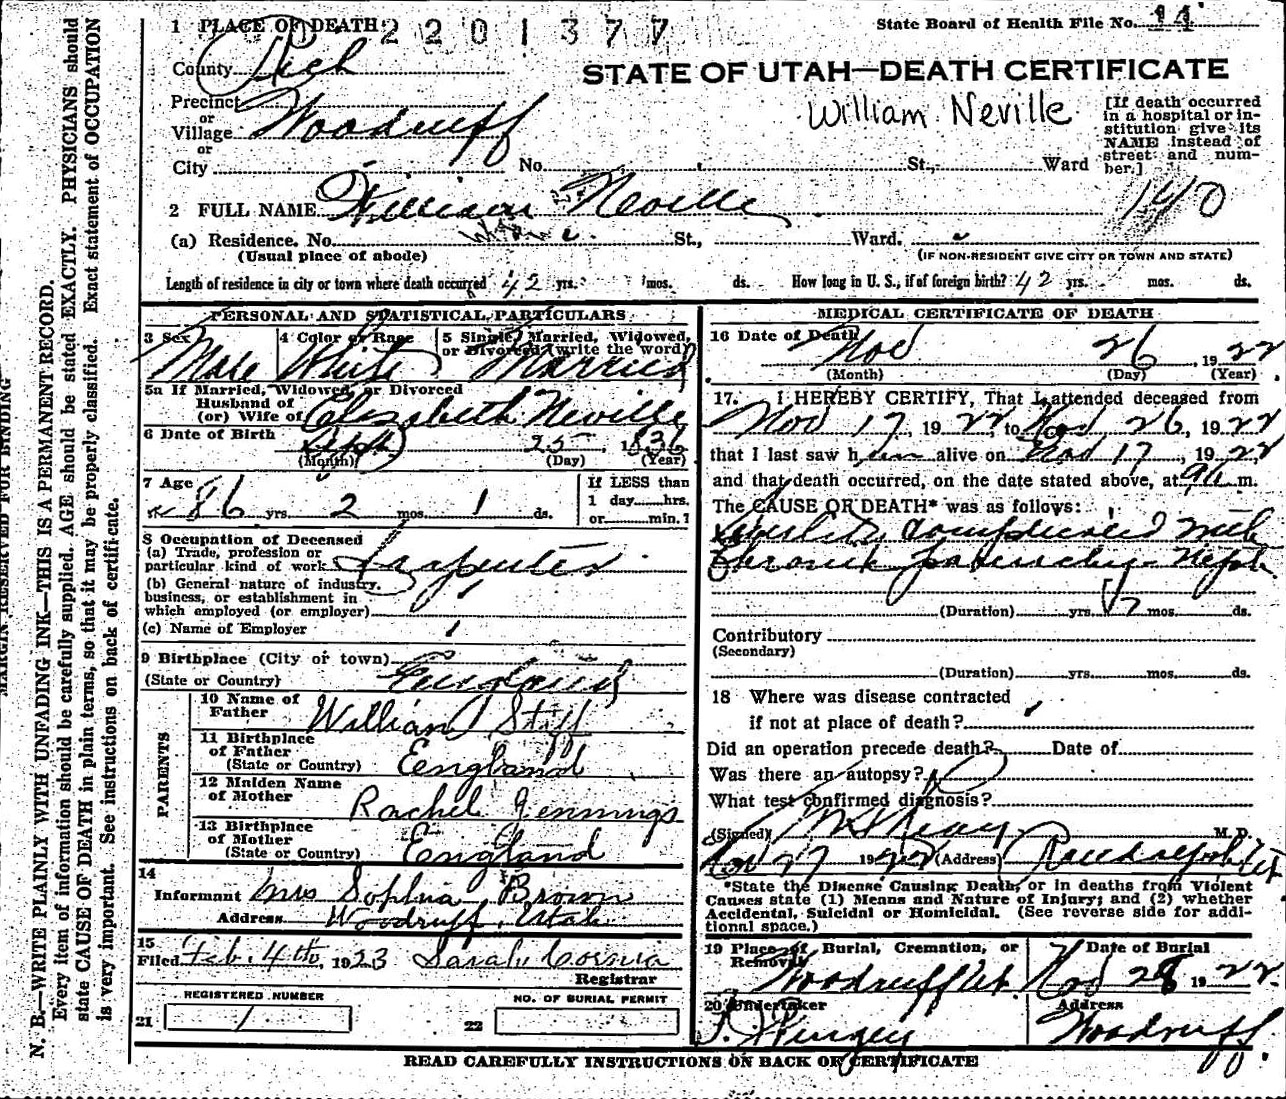 1 PLACE OF DEATH 2201377
State Board of Health File No. 14
County Rich
STATE OF UTAH—DEATH CERTIFICATE
William Neville
Precinct
or
Village Woodruff
or
City No. St., Ward
[If death occurred
in a hospital or in-
stitution give its
NAME instead of
street and num-
ber.]
140
2 FULL NAME William Neville
(a) Residence. No. St., Ward.
(Usual place of abode) (IF NON-RESIDENT GIVE CITY OR TOWN AND STATE)
Length of residence in city or town where death occurred 42 yrs. mos. ds. How long in U. S., if of foreign birth? 42 yrs. mos. ds.
PERSONAL AND STATISTICAL PARTICULARS
3 Sex Male
4 Color or Race White
5 Single, Married, Widowed,
or Divorced (write the word)
Married
5a If Married, Widowed, or Divorced
Husband of
(or) Wife of Elizabeth Neville
6 Date of Birth Sept 25 1836
(Month) (Day) (Year)
7 Age 86 yrs. 2 mos. 1 ds.
If LESS than
1 day......hrs.
or......min.?
8 Occupation of Deceased
(a) Trade, profession or
particular kind of work Carpenter
(b) General nature of industry,
business, or establishment in
which employed (or employer)
(c) Name of Employer
9 Birthplace (City or town)
(State or Country) England
PARENTS
10 Name of
Father William Stiff
11 Birthplace
of Father
(State or Country) England
12 Maiden Name
of Mother Rachel Jennings
13 Birthplace
of Mother
(State or Country) England
14
Informant Mrs Sophia Brown
Address Woodruff, Utah
15
Filed Feb. 4th, 1923 Sarah Cornia
Registrar
REGISTERED NUMBER
21 1
NO. OF BURIAL PERMIT
22
MEDICAL CERTIFICATE OF DEATH
16 Date of Death Nov 26, 1922
(Month) (Day) (Year)
17. I HEREBY CERTIFY, That I attended deceased from
Nov 17, 1922, to Nov 26, 1922
that I last saw him alive on Nov 17, 1922
and that death occurred, on the date stated above, at 9 a m.
The CAUSE OF DEATH* was as follows:
complicated with
Chronic
(Duration) yrs. mos. ds.
Contributory
(Secondary)
(Duration) yrs. mos. ds.
18 Where was disease contracted
if not at place of death?
Did an operation precede death? Date of
Was there an autopsy? No
What test confirmed diagnosis?
(Signed) M. D.
Nov 27 1922 (Address) Randolph Ut
*State the Disease Causing Death, or in deaths from Violent
Causes state (1) Means and Nature of Injury; and (2) whether
Accidental, Suicidal or Homicidal. (See reverse side for addi-
tional space.)
19 Place of Burial, Cremation, or
Removal
Woodruff Ut
Date of Burial
Nov 28 1922
20 Undertaker
Address
Woodruff
READ CAREFULLY INSTRUCTIONS ON BACK OF CERTIFICATE
MARGIN RESERVED FOR BINDING
N. B.—WRITE PLAINLY WITH UNFADING INK—THIS IS A PERMANENT RECORD.
Every item of information should be carefully supplied. AGE should be stated EXACTLY. PHYSICIANS should
state CAUSE OF DEATH in plain terms, so that it may be properly classified. Exact statement of OCCUPATION
is very important. See instructions on back of certificate.